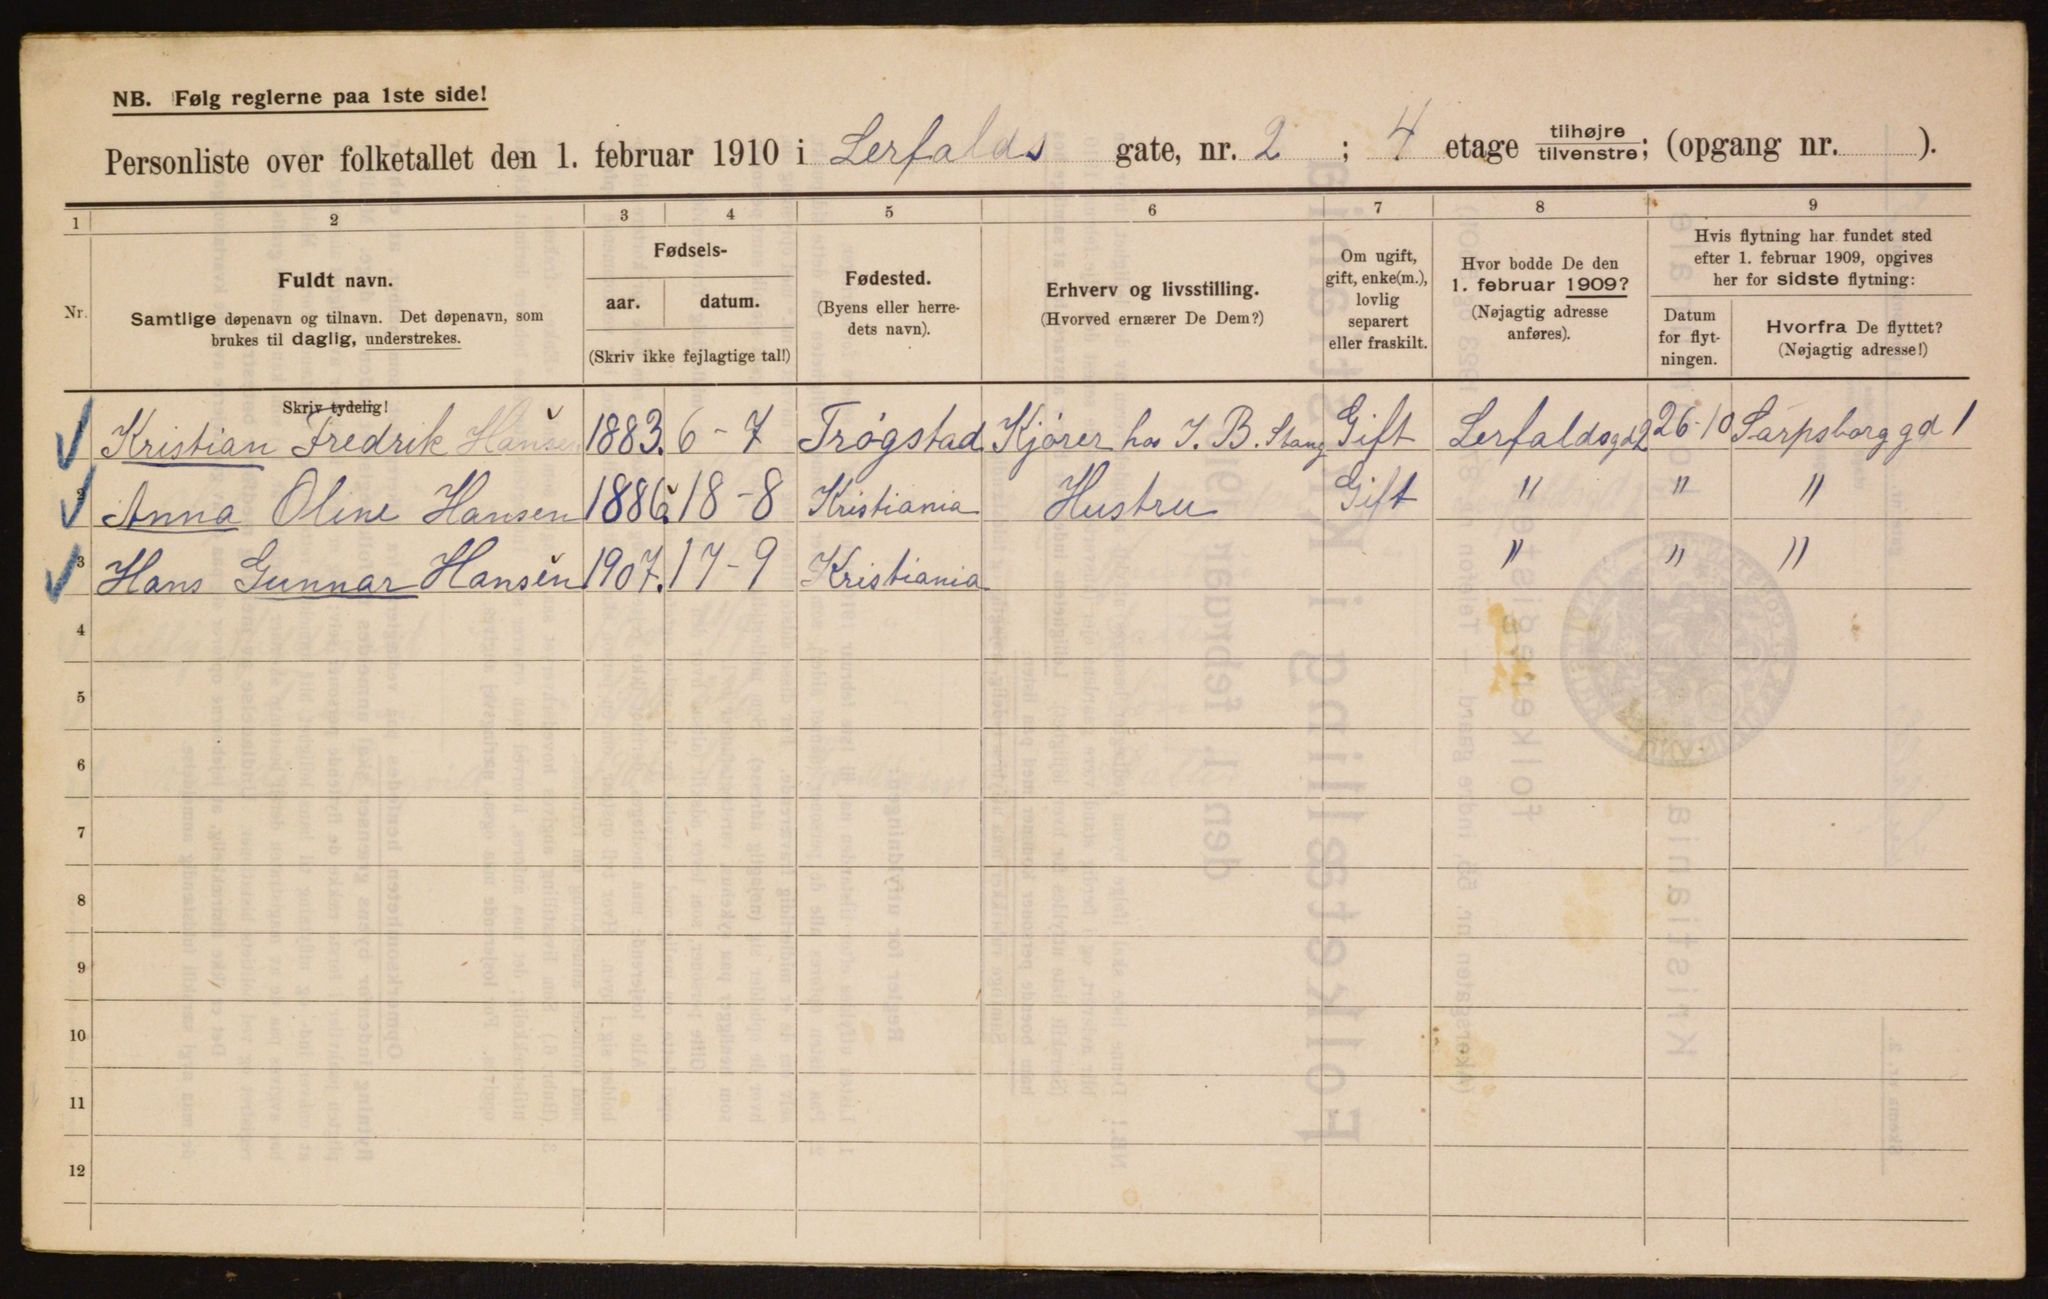 NB. Følg reglerne paa 1ste side!
Personliste over folketallet den 1. februar 1910 i Lerfalds gate, nr. 2 ; 4 etage tilhøjre tilvenstre; (opgang nr. ).
1 2 3 4 5 6 7 8 9
Nr.
Fuldt navn.
Samtlige døpenavn og tilnavn. Det døpenavn, som
brukes til daglig, understrekes.
Fødsels-
aar. datum.
(Skriv ikke fejlagtige tal!)
Fødested.
(Byens eller herre-
dets navn).
Erhverv og livsstilling.
(Hvorved ernærer De Dem?)
Om ugift,
gift, enke(m.),
lovlig
separert
eller fraskilt.
Hvor bodde De den
1. februar 1909?
(Nøjagtig adresse
anføres).
Hvis flytning har fundet sted
efter 1. februar 1909, opgives
her for sidste flytning:
Datum
for flyt-
ningen.
Hvorfra De flyttet?
(Nøjagtig adresse!)
Skriv tydelig!
Kristian Fredrik Hansen 1883. 6-7 Trøgstad Kjører hos J. B. Stang Gift Lerfaldsgd 2 26-10 Sarpsborggd 1
2 Anna Oline Hansen 1886. 18-8 Kristiania Hustru Gift " " "
3 Hans Gunnar Hansen 1907. 17-9 Kristiania " " "
4
5
6
7
8
9
10
11
12